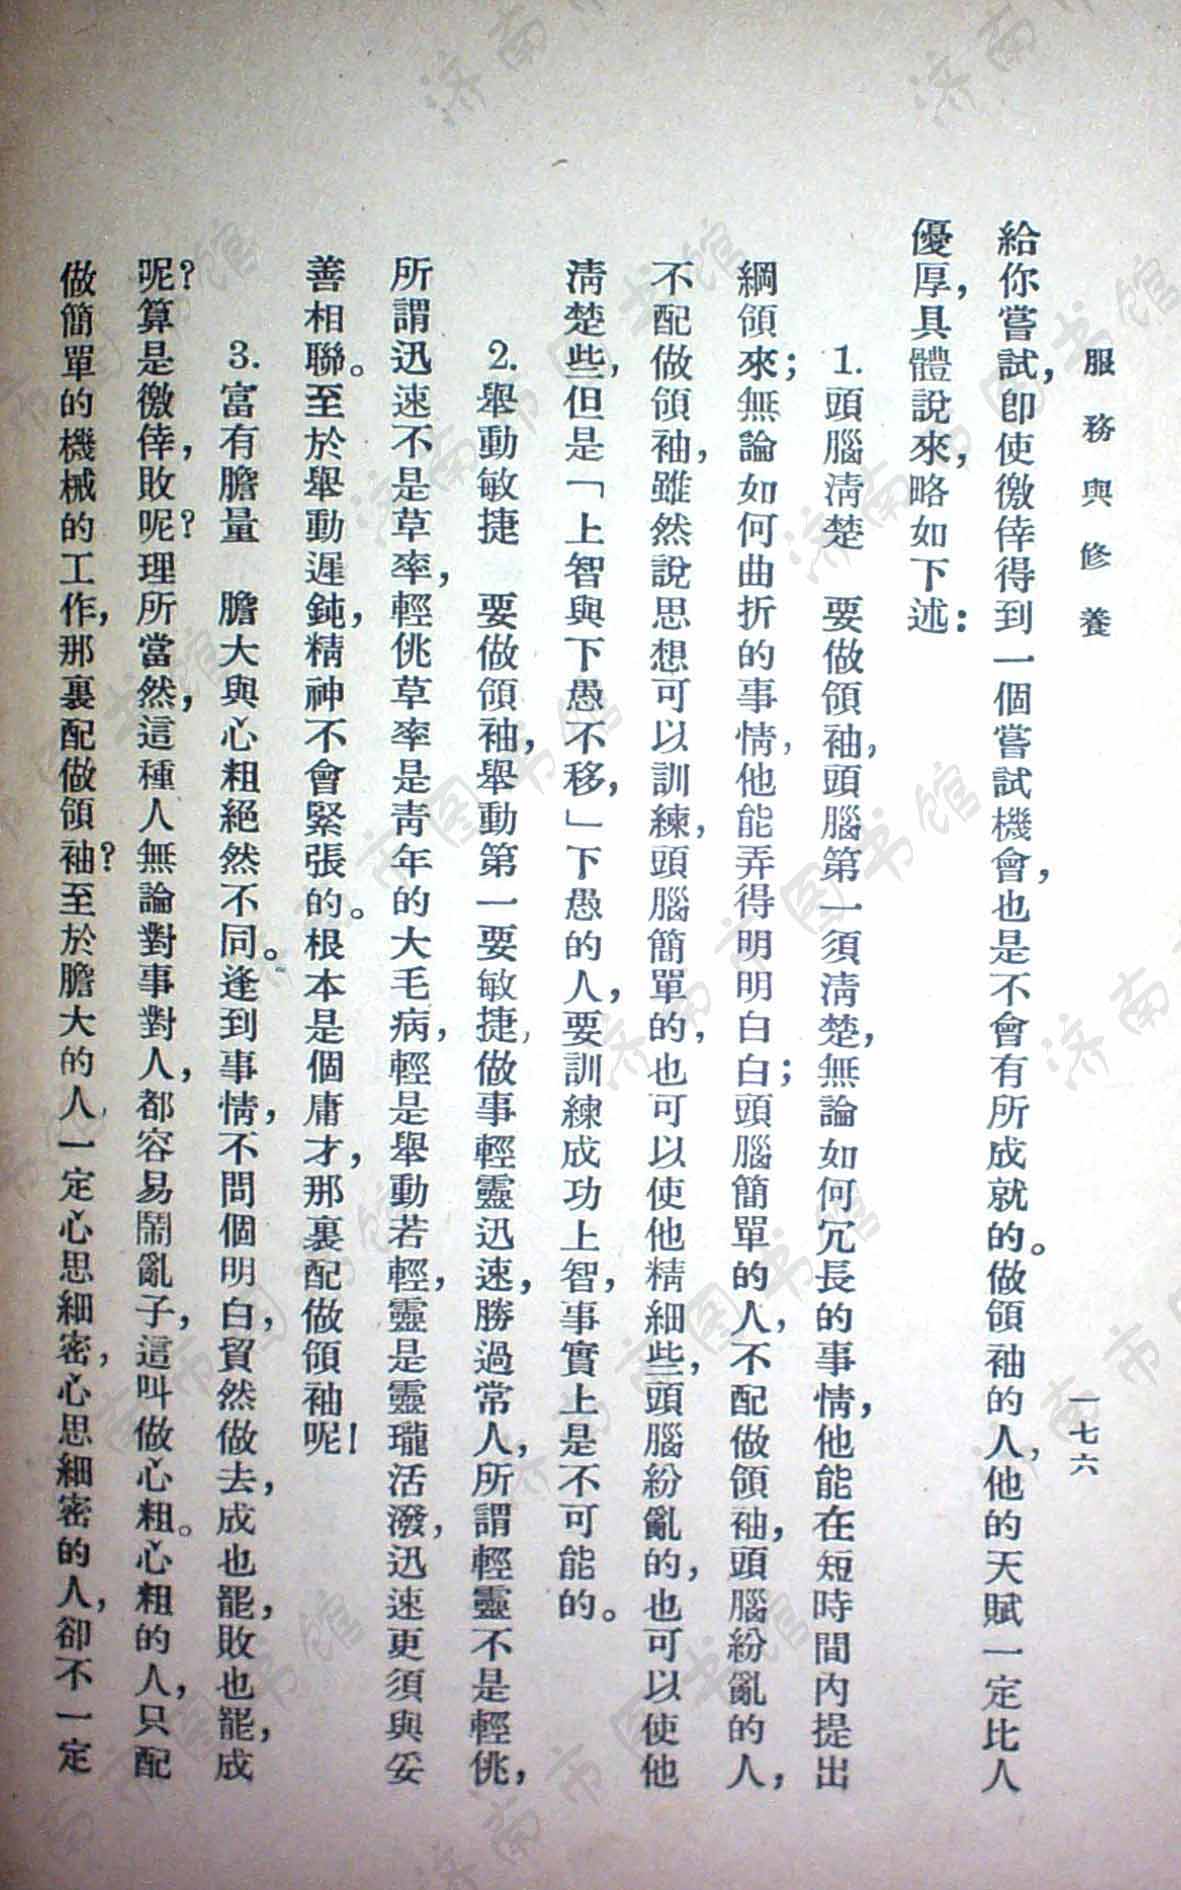 服務與修養
一七六
給你嘗試，卽使徼倖得到一個嘗試機會，也是不會有所成就的。做領袖的人，他的天賦一定比人
優厚，具體說來，略如下述：
1. 頭腦淸楚　要做領袖，頭腦第一須淸楚，無論如何冗長的事情，他能在短時間內提出
綱領來；無論如何曲折的事情，他能弄得明明白白；頭腦簡單的人，不配做領袖，頭腦紛亂的人，
不配做領袖，雖然說思想可以訓練，頭腦簡單的，也可以使他精細些，頭腦紛亂的，也可以使他
淸楚些，但是「上智與下愚不移，」下愚的人，要訓練成功上智，事實上是不可能的。
2. 舉動敏捷　要做領袖，舉動第一要敏捷，做事輕靈迅速，勝過常人，所謂輕靈不是輕佻，
所謂迅速不是草率，輕佻草率是靑年的大毛病，輕是舉動若輕，靈是靈瓏活潑，迅速更須與妥
善相聯。至於舉動遲鈍，精神不會緊張的。根本是個庸才，那裏配做領袖呢！
3. 富有膽量　膽大與心粗絕然不同。逢到事情，不問個明白，貿然做去，成也罷，敗也罷，成
呢？算是徼倖，敗呢？理所當然，這種人無論對事對人，都容易鬧亂子，這叫做心粗。心粗的人，只配
做簡單的機械的工作，那裏配做領袖？至於膽大的人，一定心思細密，心思細密的人，卻不一定
济南市图书馆